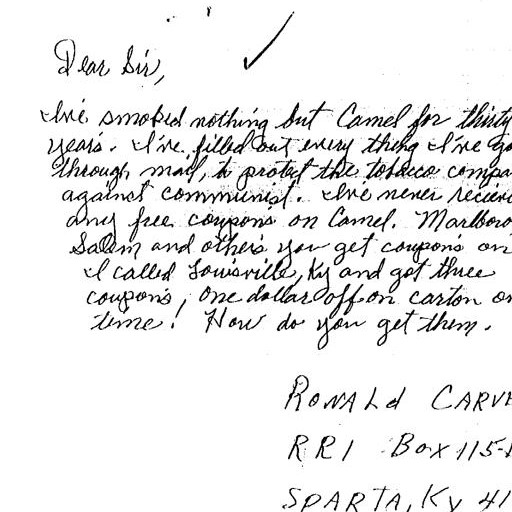 Dear Sir,
I've smoked nothing but Camel for thirty
years. I've filled out every thing I've go
through mail, to protect the tobacco compa
against communist. I've never reciev
any free coupons on Camel. Marlboro
Salem and others you get coupons on
I called Louisville, Ky and got three
coupons, one dollar off on carton on
time! How do you get them.
RONALd CARVE
RR1 Box 115-
SPARTA, Ky 41